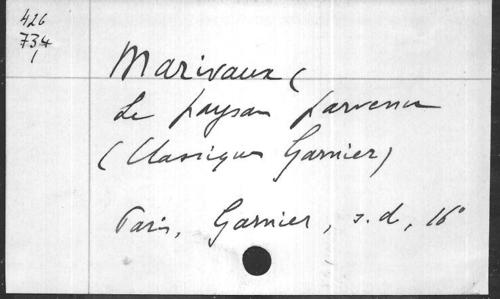 426
734
1
Marivaux (
Le paysan parvenu
(Classiques Garnier)
Paris, Garnier, s.d., 16°